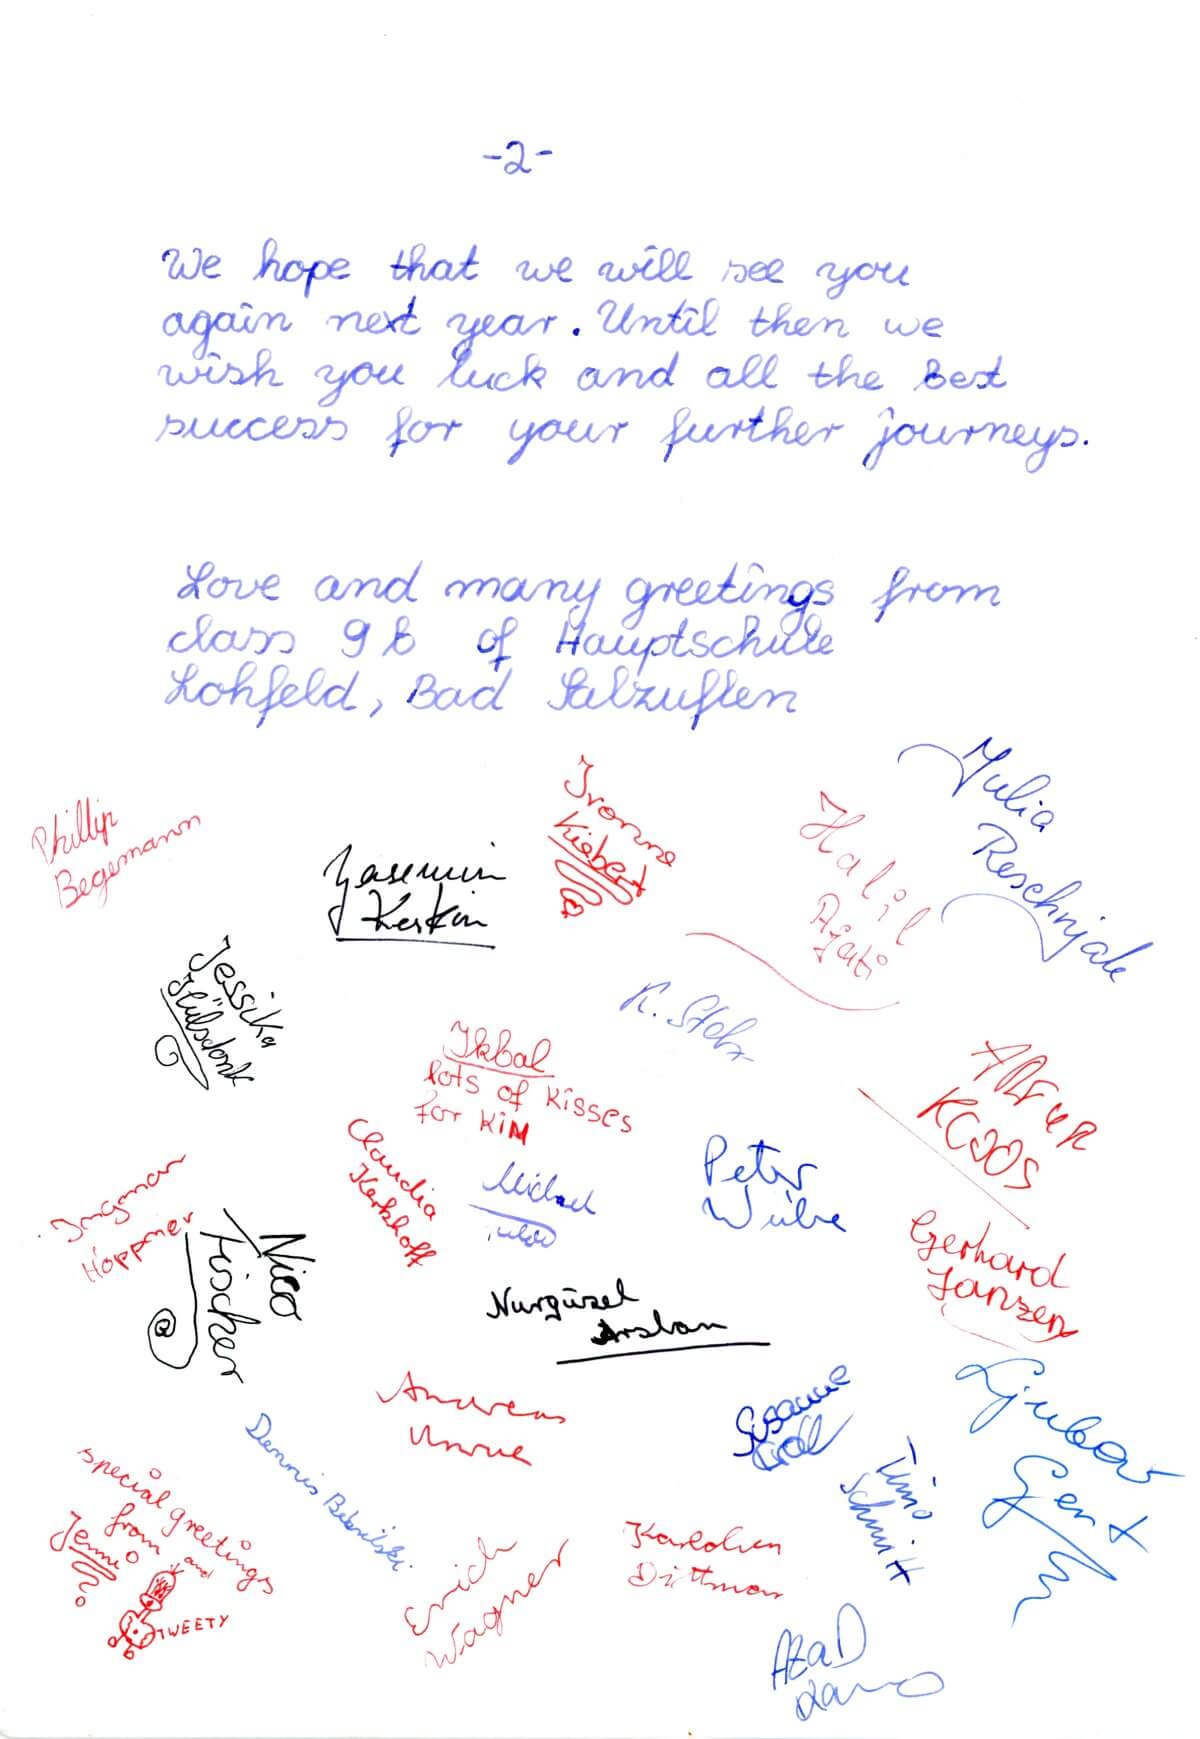 -2-
We hope that we will see you
again next year. Until then we
wish you luck and all the Best
success for your further journeys.
Love and many greetings from
class 9b of Hauptschule
Lohfeld, Bad Salzuflen
Julia
Reschnjak
Ivonne
Kiebert
Halil
Ajati
Phillip
Begemann
Yasemin
Keskin
Jessika
Hülsdonk
K.
Ikbal
lots of Kisses
for KiM
ARtuR
Claudia
Kerkhoff
Michael
Peter
Wiebe
Ingmar
Höppner
Nico
Fischer
Gerhard
Janzen
Nurgüzel
Arslan
Andreas
Unrue
Susanne
Ljubov
Gent
Timo
Schmitt
Dennis
special greetings
from
Jenni and
TWEETY
Erich
Wagner
Dittmar
AzaD